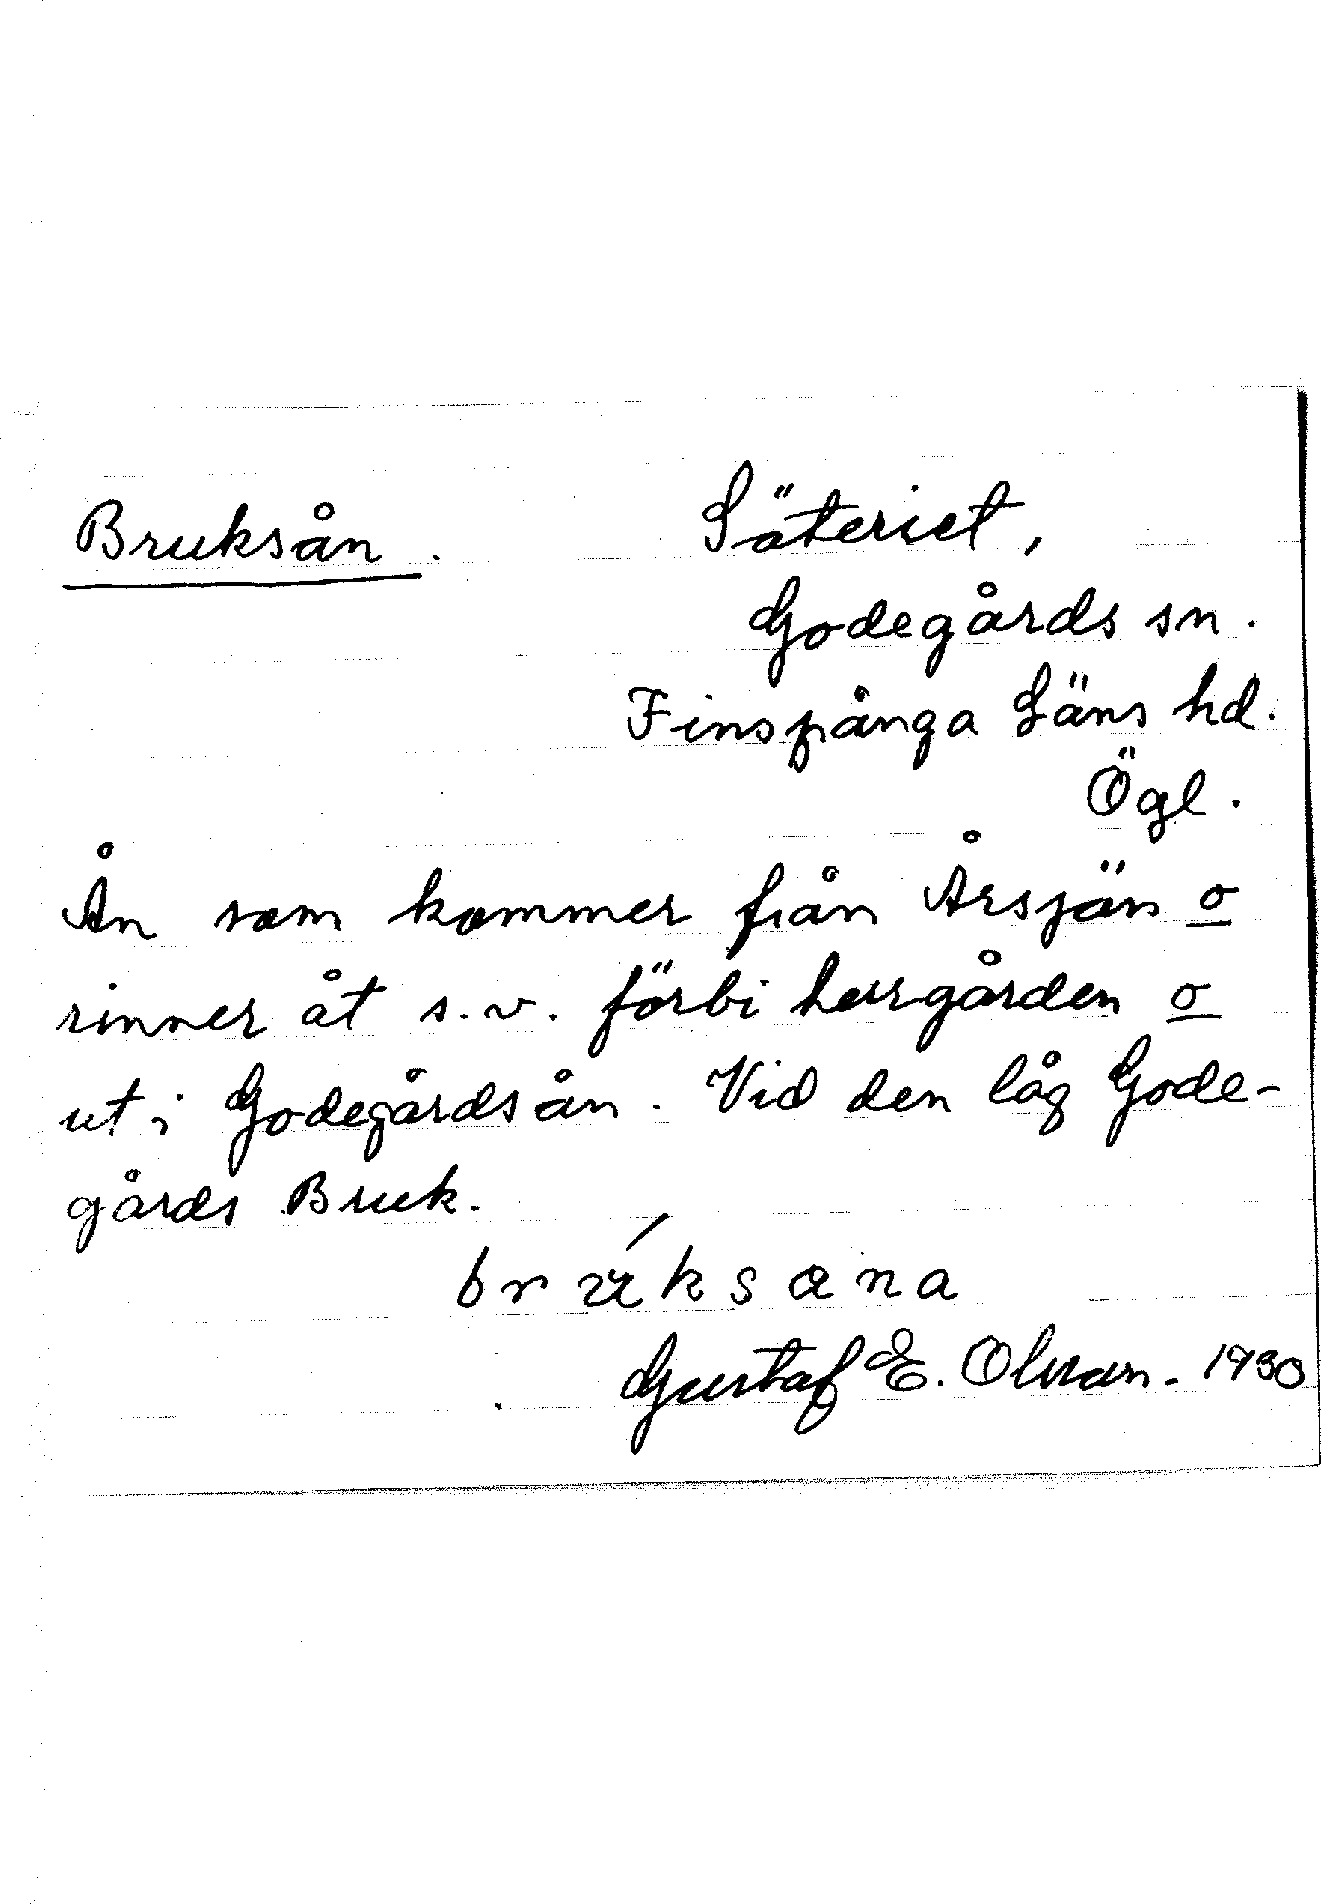 Bruksån.
Säteriet,
Godegårds sn.
Finspånga Läns hd.
Ögl.
Ån som kommer från Årsjön o
rinner åt s.v. förbi herrgården o
ut i Godegårdsån. Vid den låg Gode-
gårds Bruk.
Gustaf E. Olsson. 1930